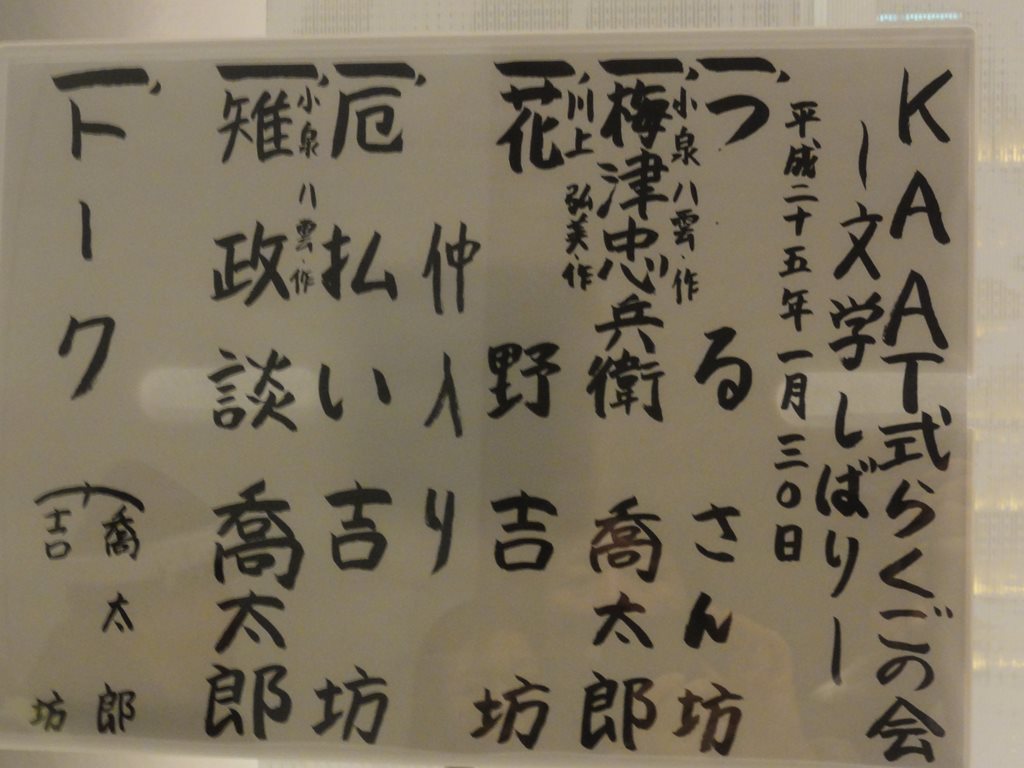 KAAT式らくごの会
ー文学しばりー
平成二十五年一月三〇日
一、つる さん坊
小泉八雲・作
一、梅津忠兵衛 喬太郎
川上弘美・作
一、花野 吉坊
仲入り
一、厄払い 吉坊
小泉八雲・作
一、雉政談 喬太郎
一、トーク
喬太郎
吉坊